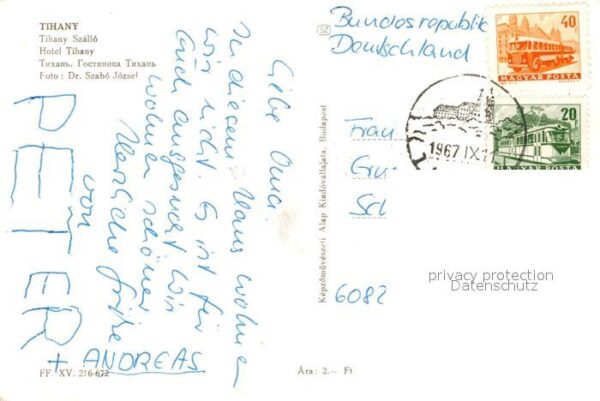 TIHANY
Tihany Szálló
Hotel Tihany
Тихань. Гостиница Тихань
Foto : Dr. Szabó József
Liebe Oma.
In diesem Haus wohnen
wir nicht. Es ist für
Euch ausgesucht. Wir
wohnen schöner
Herzliche Grüße
von
PETER
+ ANDREAS
FF. XV. 216-672
Ára : 2.— Ft
Képzőművészeti Alap Kiadóvállalata, Budapest
SZ
Bundesrepublik
Deutschland
40
MAGYAR POSTA
20
MAGYAR POSTA
1967 IX 11
Frau
Gru
Sch
6082
privacy protection
Datenschutz